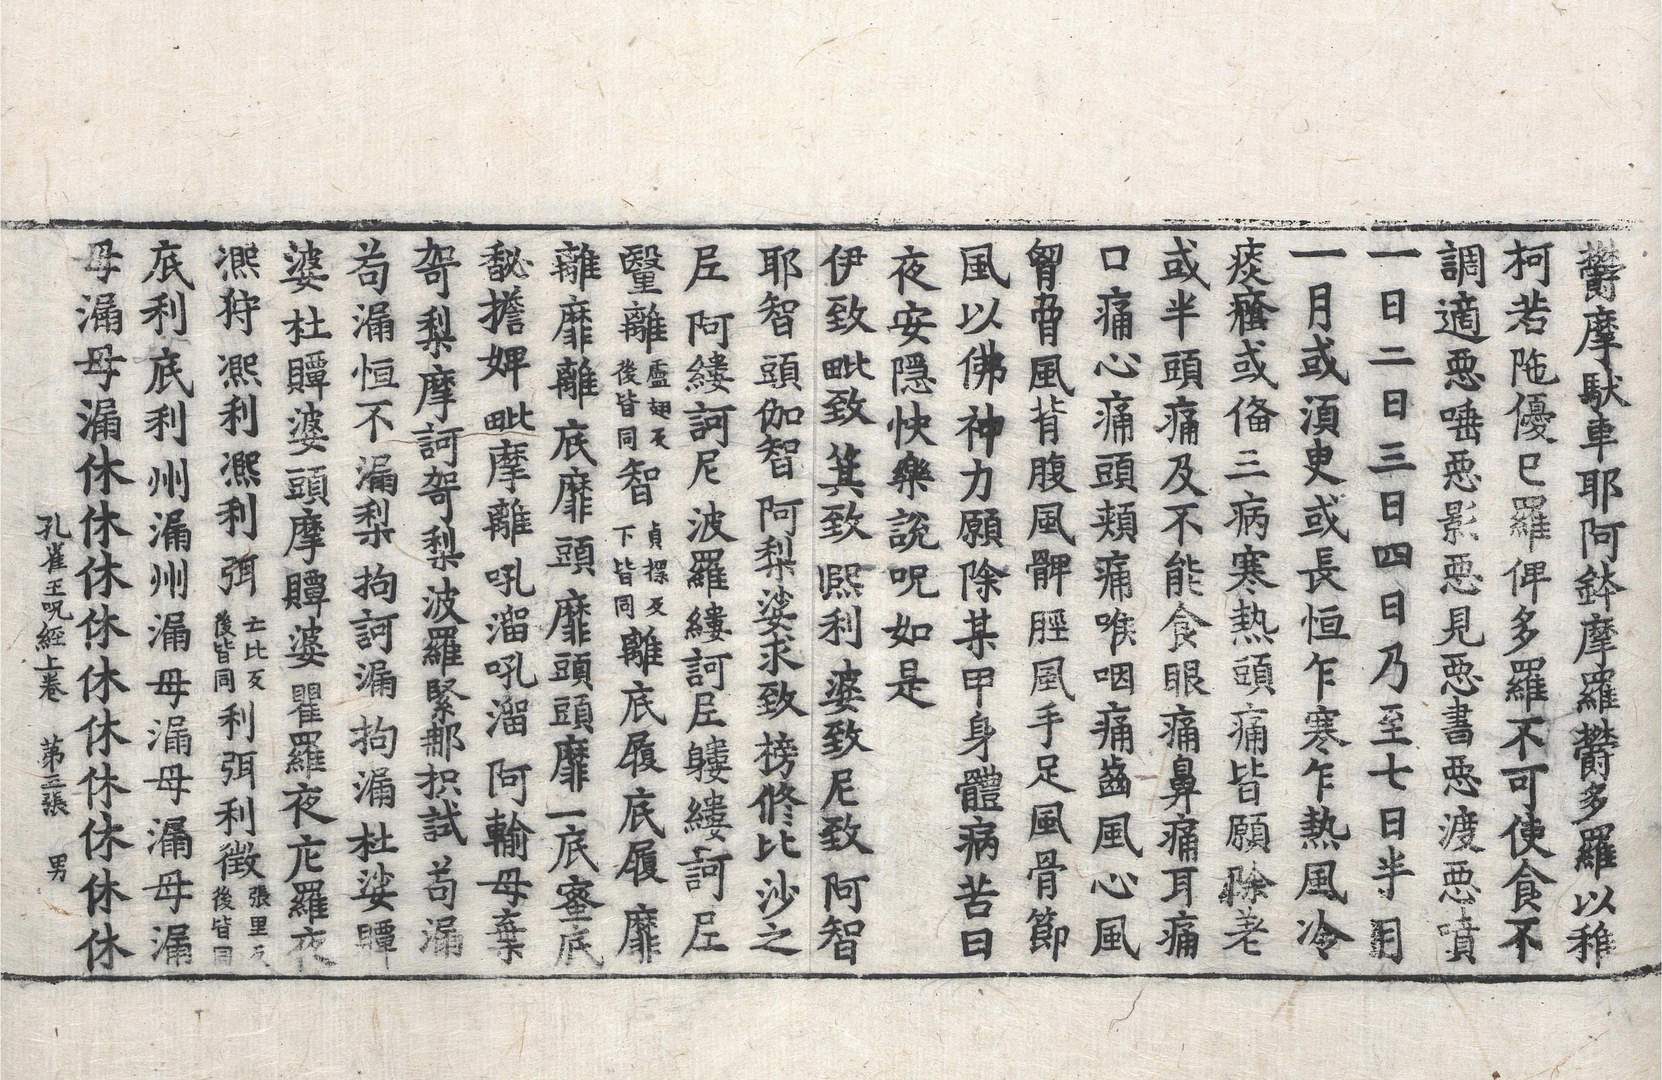 欝摩馱車耶阿鉢摩羅欝多羅以稚
柯若陁優巳羅俾多羅不可使食不
調適惡唾惡影惡見惡書惡渡惡噴
一日二日三日四日乃至七日半月
一月或須臾或長恒乍寒乍熱風冷
痰癊或俻三病寒熱頭痛皆願除差
或半頭痛及不能食眼痛鼻痛耳痛
口痛心痛頭頰痛喉咽痛齒風心風
𮌎脅風背腹風髀脛風手足風骨節
風以佛神力願除某甲身體病苦日
夜安隱快樂說呪如是
伊致毗致箕致熙利婆致尼致阿智
耶智頭伽智阿梨娑求致榜修比沙之
𡰱阿縷訶尼波羅縷訶𡰱𨄔縷訶𡰱
毉離盧翅反後皆同智貞摖反下皆同離底履底履靡
離靡離底靡頭靡頭頭靡一底蜜底
馝擔婢毗摩離吼溜吼溜阿輸母棄
哿梨摩訶哿梨波羅緊那抧試苟漏
苟漏恒不漏梨拘訶漏拘漏杜娑贉
婆杜贉婆頭摩贉婆瞿羅夜庀羅夜
凞狩凞利凞利弭亡比反後皆同利弭利徴張里反後皆同
底利底利州漏州漏母漏母漏母漏
母漏母漏休休休休休休休休休休
孔雀王呪經上卷　第三張　男